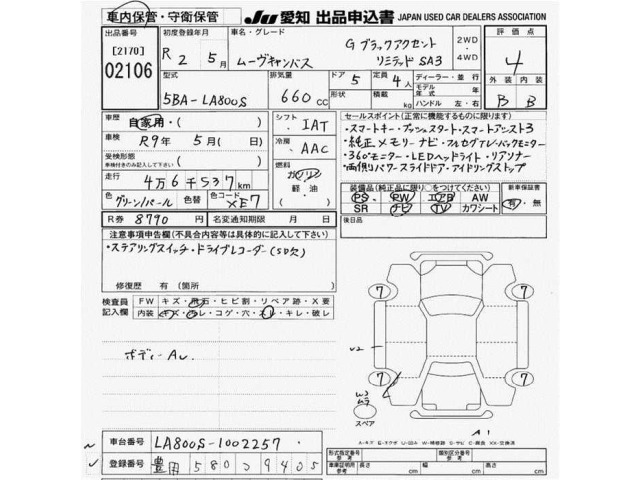 車内保管・守衛保管
JU 愛知 出品申込書 JAPAN USED CAR DEALERS ASSOCIATION
出品番号 [2170] 02106
初度登録年月 R 2 5月
車名・グレード ムーヴキャンバス G ブラックアクセント リミテッド SA3
2WD・4WD
評価点 4
型式 5BA-LA800S
排気量 660cc
ドア 5 形状
定員 4人 積載 kg
ディーラー・並行
モデル年式 年
ハンドル 左・右
外装 B 内装 B
車歴 自家用・( )
車検 R9年 5月( 日)
受検形態 車検付きのみ記入して下さい ( )
走行 4万6千537km
色 グリーン/パール 色替 色コード XE7
シフト IAT
冷房 AAC
燃料 ガソリン 軽・油 ( )
セールスポイント(正常に機能するものに限ります)
・スマートキー・プッシュスタート・スマートアシスト3
・純正メモリーナビ・フルセグTV・バックモニター
・360°モニター・LEDヘッドライト・リアソナー
・両側パワースライドドア・アイドリングストップ
装備品(純正品に限り○をつけてください)
PS PW エアB AW
SR ナビ TV カワシート
新車保証書 有・無
R券 8790 名変通知期限 月 日
後日品
注意事項申告欄(不具合内容等は具体的に記入して下さい)
・ステアリングスイッチ・ドライブレコーダー(SD欠)
修復歴 有(箇所 )
検査員記入欄
FW キズ・飛石・ヒビ割・リペア跡・X要
内装 キズ・汚レ・コゲ・穴・スレ・キレ・破レ
ボディーAu
7 7
7 7
U2
W3
ムラ
スペア
A1
車台番号 LA800S-1002257
登録番号 豊田 580 つ 9405
型式指定番号 参考
類別区分番号 参考
車車証明用 参考 長さ cm 幅 cm 高さ cm